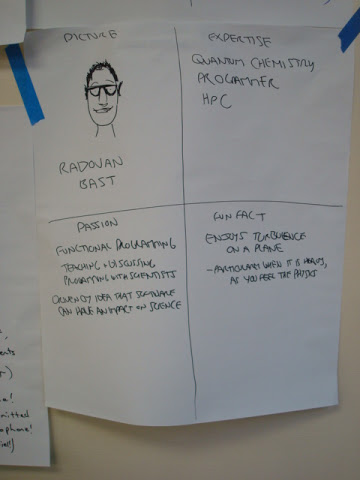 PICTURE
RADOVAN
BAST
EXPERTISE
QUANTUM CHEMISTRY
PROGRAMMER
HPC
PASSION
FUNCTIONAL PROGRAMMING
TEACHING + DISCUSSING
PROGRAMMING WITH SCIENTISTS
DRIVEN BY IDEA THAT SOFTWARE
CAN HAVE AN IMPACT ON SCIENCE
FUN FACT
ENJOYS TURBULENCE
ON A PLANE
- PARTICULARLY WHEN IT IS HEAVY,
AS YOU FEEL THE PHYSICS